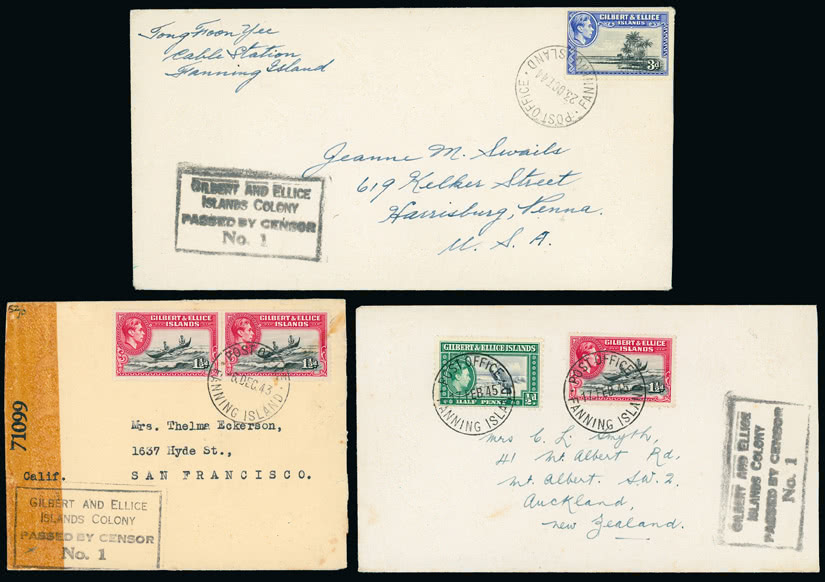 Tong Foon Yee
Cable Station
Fanning Island
GILBERT & ELLICE
ISLANDS
3d
POST OFFICE
23 OCT 44
FANNING ISLAND
Jeanne M. Swails
619 Kelker Street
Harrisburg, Penna.
U. S. A.
GILBERT AND ELLICE
ISLANDS COLONY
PASSED BY CENSOR
No. 1
71099
GILBERT & ELLICE
ISLANDS
1½d
GILBERT & ELLICE
ISLANDS
1½d
POST OFFICE
DEC. 43
FANNING ISLAND
Mrs. Thelma Eckerson,
1637 Hyde St.,
SAN FRANCISCO.
Calif.
GILBERT AND ELLICE
ISLANDS COLONY
PASSED BY CENSOR
No. 1
GILBERT & ELLICE ISLANDS
HALF PENNY
½d
POST OFFICE
FEB 45
FANNING ISLAND
GILBERT & ELLICE
ISLANDS
1½d
POST OFFICE
17 FEB 45
FANNING ISLAND
Mrs C. L. Smyth,
41 Mt Albert Rd,
Mt. Albert. SW.2.
Auckland,
New Zealand.
GILBERT AND ELLICE
ISLANDS COLONY
PASSED BY CENSOR
No. 1